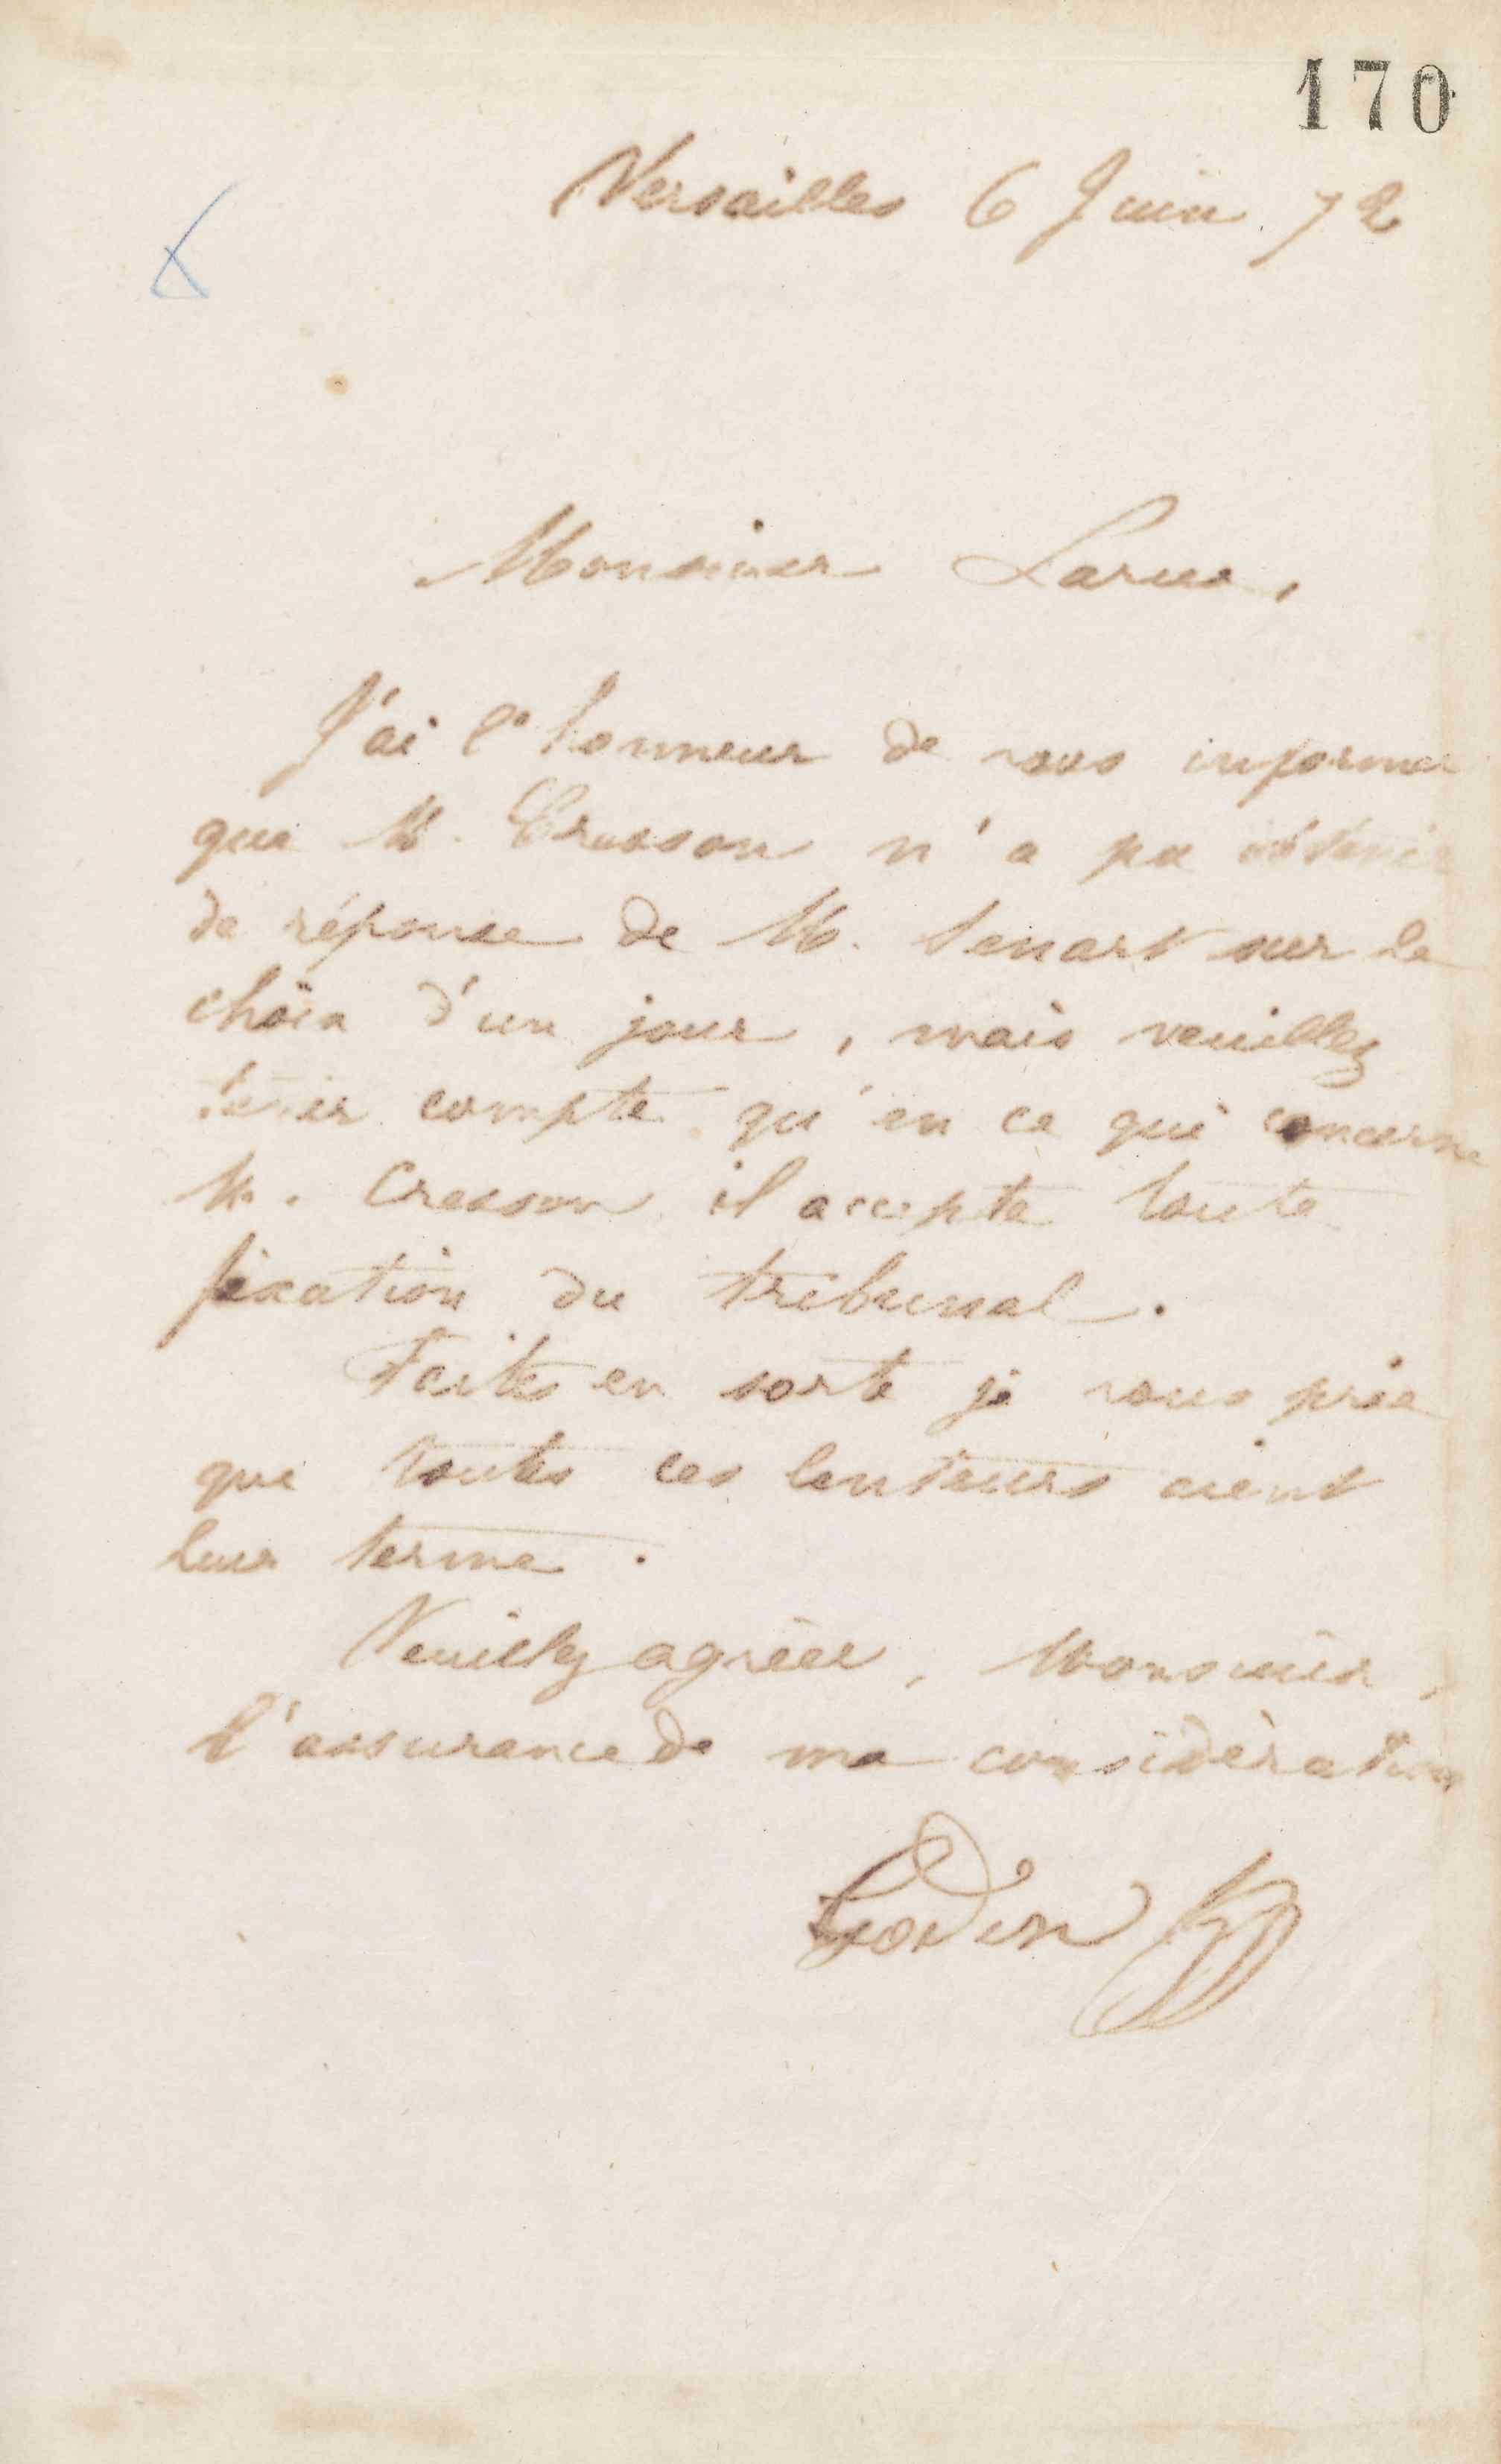 170
Versailles 6 Juin 72
Monsieur Larue,
J'ai l'honneur de vous informer
que M. Cresson n'a pu obtenir
de réponse de M. Senart sur le
choix d'un jour, mais veuillez
tenir compte qu'en ce qui concerne
M. Cresson il accepte toute
fixation du tribunal.
Faites en sorte je vous prie
que toutes ces lenteurs aient
leur terme.
Veuillez agréer, Monsieur,
l'assurance de ma considération
Godin